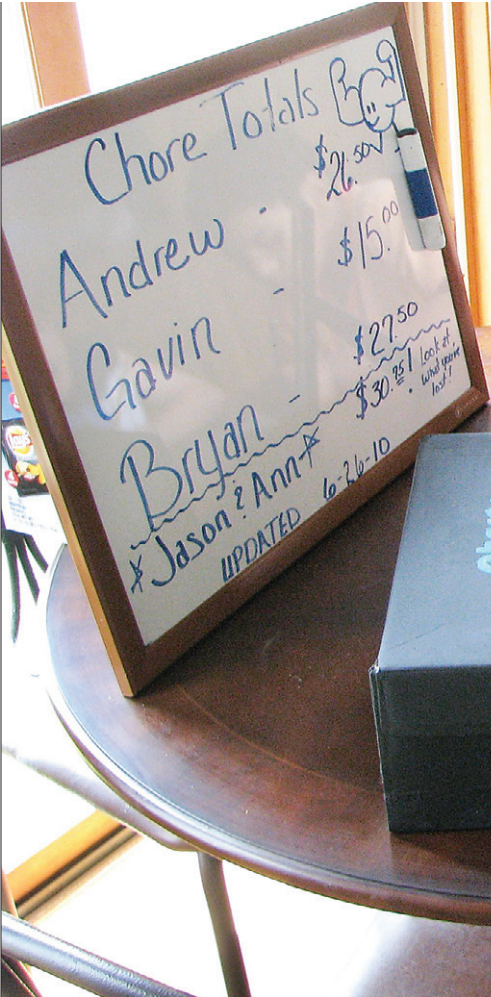 Chore Totals
Andrew - $26.50
Gavin - $15.00
Bryan - $27.50
*Jason & Ann* $30.75! Look at
what you've
lost!
UPDATED 6-26-10
Lay's